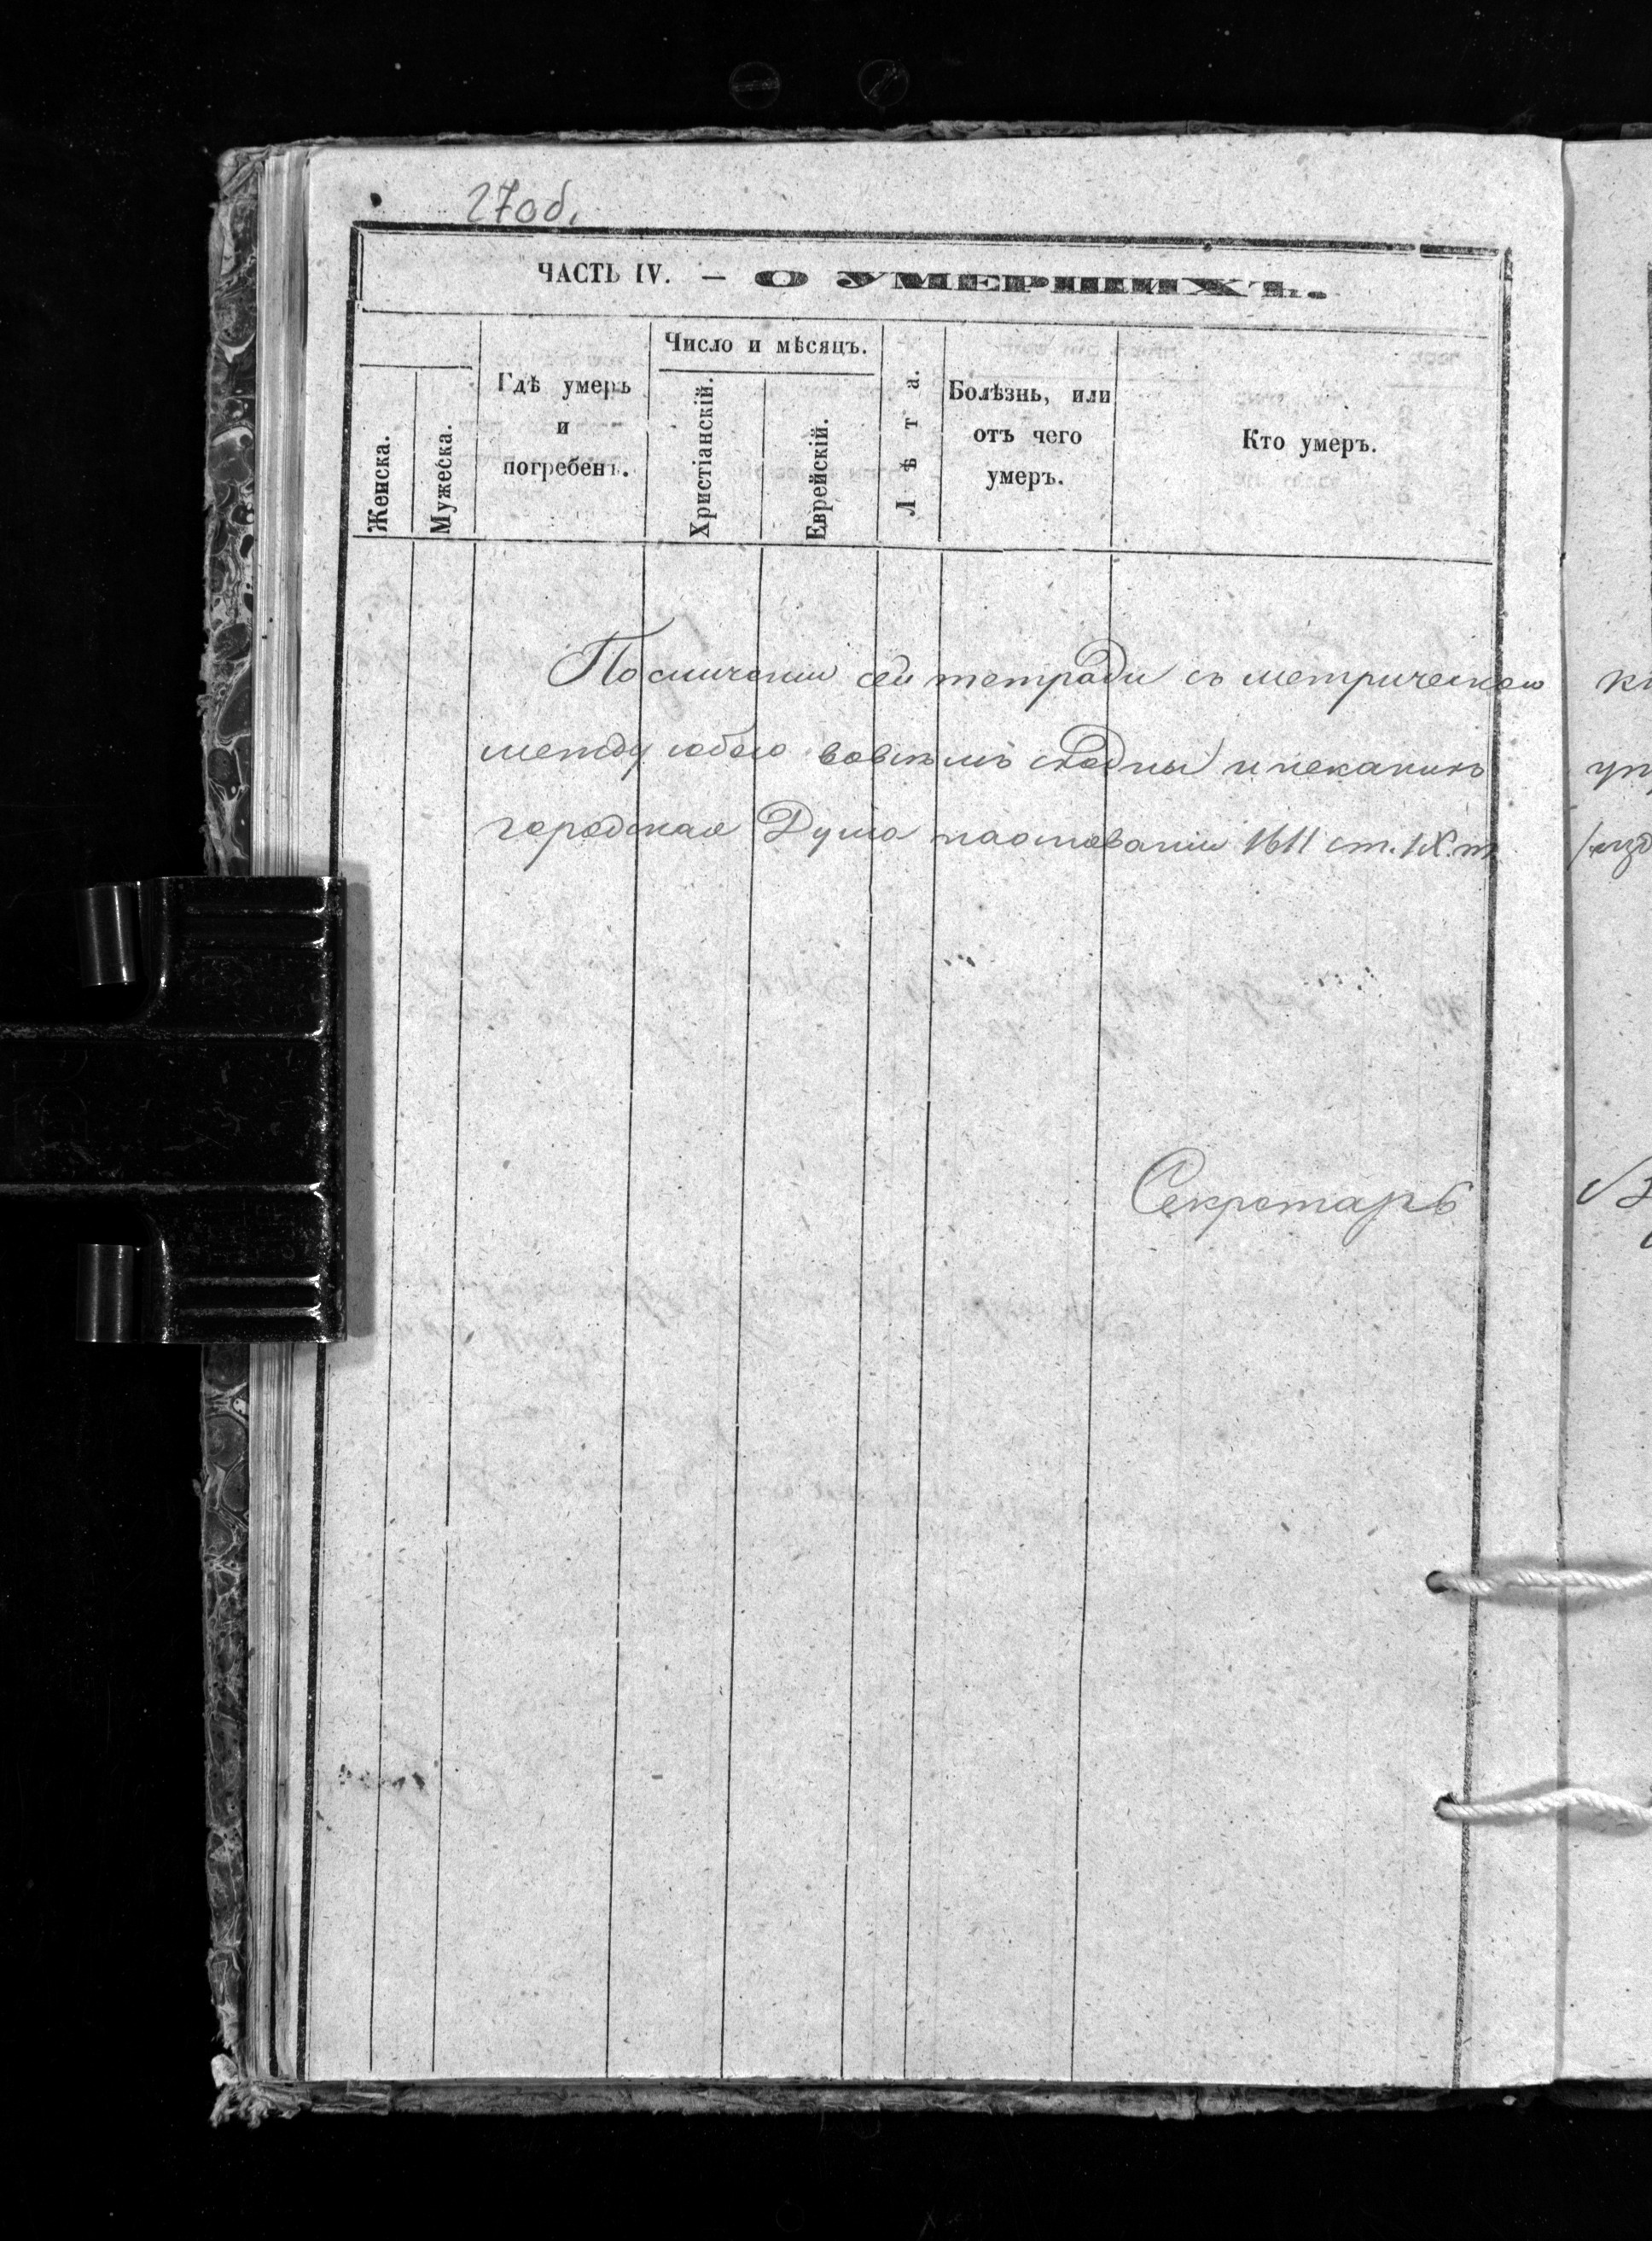 27об.
ЧАСТЬ IV. — О УМЕРШИХЪ.
Женска.
Мужеска.
Гдѣ умеръ
и
погребенъ.
Число и мѣсяцъ.
Христіанскій.
Еврейскій.
Лѣта.
Болѣзнь, или
отъ чего
умеръ.
Кто умеръ.
По сличении сей тетради съ метрическою
между собою вовсемъ сходны и никакихъ
городская Дума наосновании 1611 ст. IX. т.
Секретарь